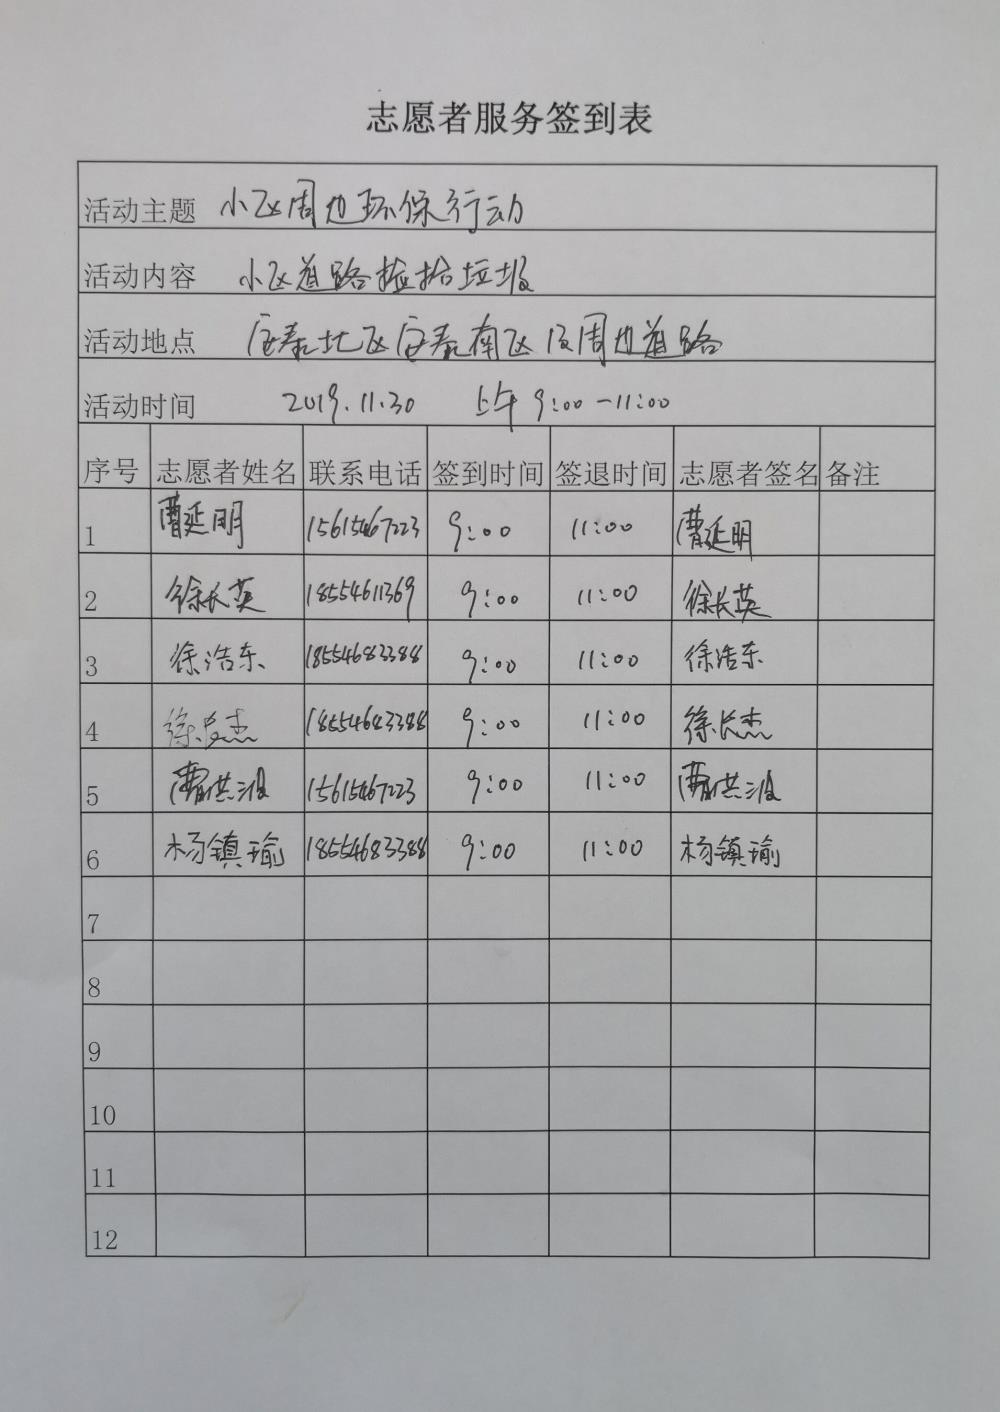 志愿者服务签到表
活动主题 小区周边环保行动
活动内容 小区道路捡拾垃圾
活动地点 安泰北区安泰南区及周边道路
活动时间 2019.11.30 上午 9:00-11:00
序号 志愿者姓名 联系电话 签到时间 签退时间 志愿者签名 备注
1 曹延明 15615467223 9:00 11:00 曹延明
2 徐长英 18554611369 9:00 11:00 徐长英
3 徐浩东 18554683388 9:00 11:00 徐浩东
4 徐长杰 18554683388 9:00 11:00 徐长杰
5 曹洪波 15615467223 9:00 11:00 曹洪波
6 杨镇瑜 18554683388 9:00 11:00 杨镇瑜
7
8
9
10
11
12